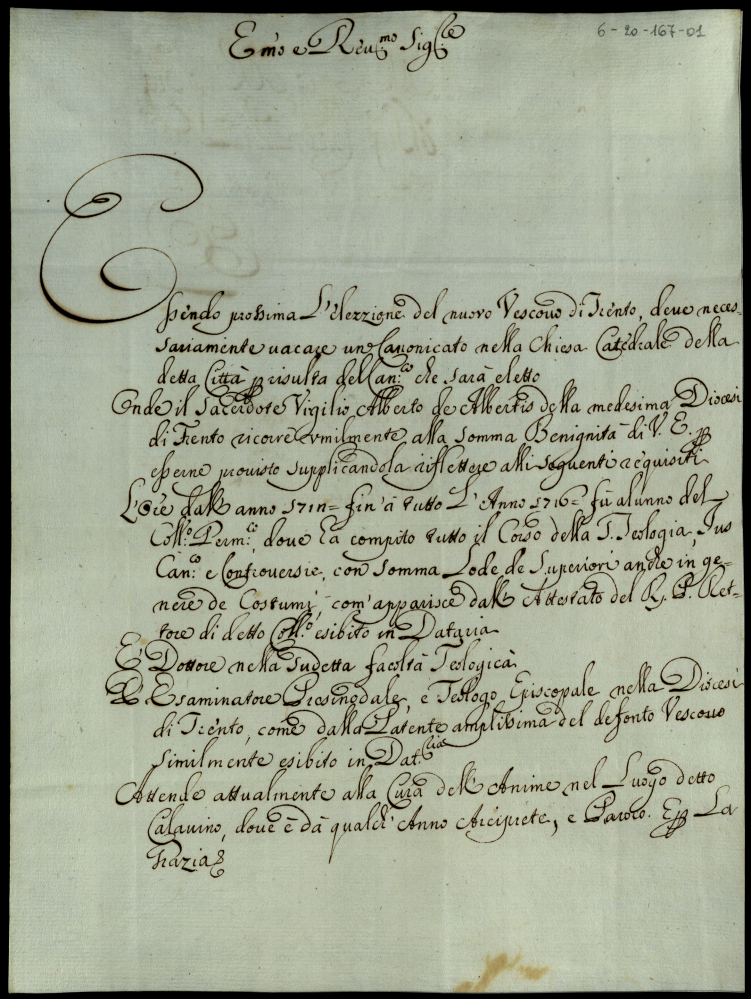 6-20-167-01
Emo e Reu.mo Sig.re
Essendo prossima L'elezzione del nuovo Vescouo di Trento, deue neces-
sariamente uacare un Canonicato nella Chiesa Catedrale della
detta Città p risulta del Can.co che sarà eletto
Onde il Sacerdote Virgilio Alberto de Albertis della medesima Diocesi
di Trento ricorre vmilmente alla somma Benignità di V. E. p
esserne prouisto supplicandola riflettere alli seguenti requisiti
L'Ore dall'anno fin'à tutto L'Anno 1716= fù alunno del
Coll.o Germ.co, dove hà compito tutto il Corso della S. Teologia, Jus
Can.co e Controversie, con somma Lode de Superiori anche in ge-
nere de Costumi, com'apparisce dall'Attestato del R. P. Ret-
tore di detto Coll.o esibito in Dataria
E' Dottore nella sudetta facoltà Teologica
E' Esaminatore Prosinodale, e Teologo Episcopale nella Diocesi
di Trento, come dalla Patente amplissima del defonto Vescouo
similmente esibito in Dat.ria
Attende attualmente alla Cura dell'Anime nel Luogo detto
Calauino, doue è dà qualch'Anno Arciprete, e Paroco. E p La
Grazia &